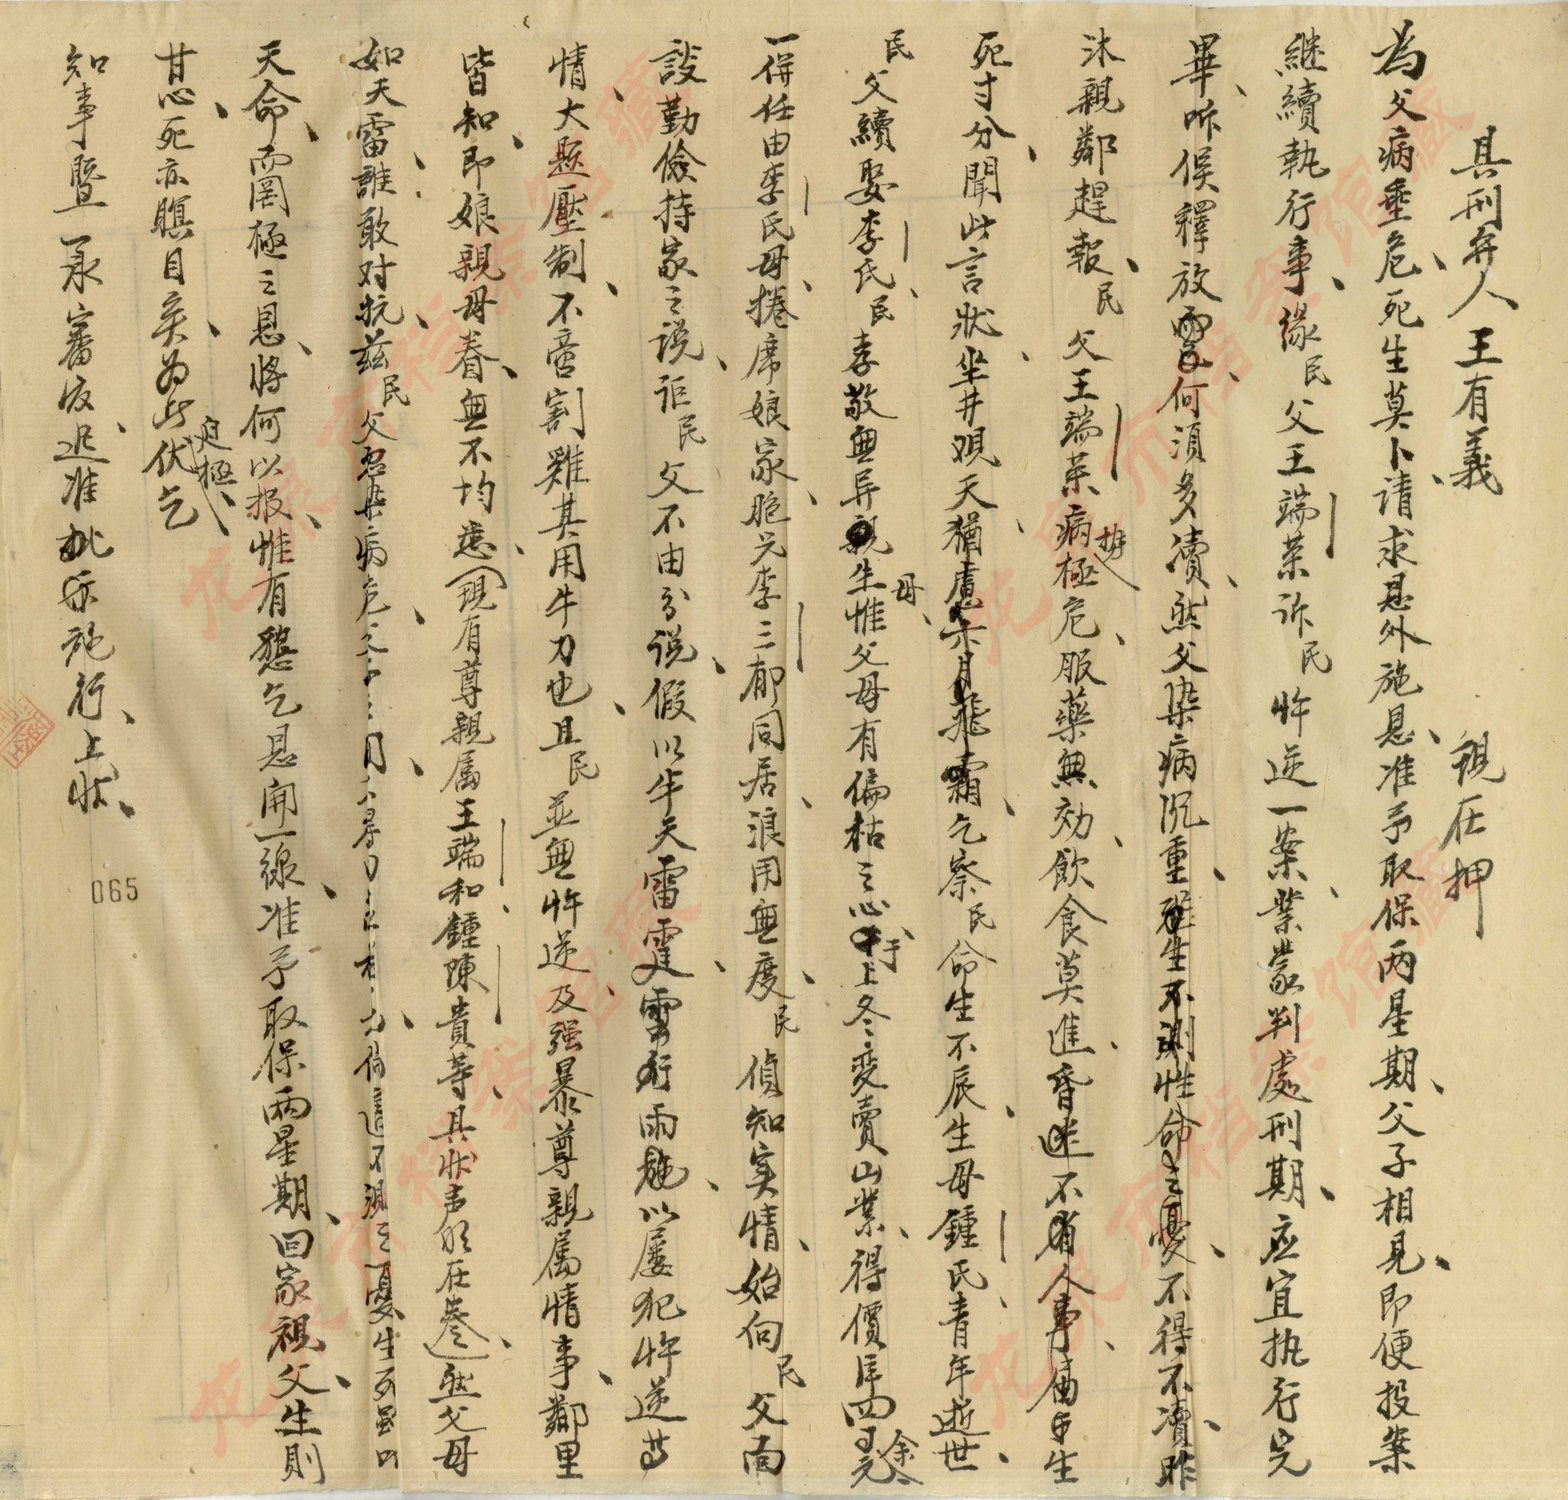 具刑弁人王有義 視在押
為父病垂危死生莫卜请求恩外施恩准予取保两星期父子相見即便投案
継續執行事缘民父王端荣訴民忤逆一案業蒙判處刑期应宜执行完
畢听候釋放何須多凟然父染病沉重难生不測性命之憂不得不凟昨
沐親鄰趕報民父王端荣病極危服藥無効飲食莫進昏迷不省人事與生
死寸分聞此言狀坐井观天猶慮六月飛霜乞察民命生不辰生母鍾氏青年逝世
民父續娶李氏民孝敬無异親生母惟父母有偏枯之心于上冬变賣山業得價洋四余元
一併任由李氏母捲席娘家胞兄李三郁同居浪用無度民偵知实情始向民父面
談勤儉持家之说詎民父不由分说假以牛天雷霆雪行雨施以屢犯忤逆等
情大题壓制不啻割雞其用牛刀也且民並無忤逆及强暴尊親属情事鄰里
皆知即娘親母眷無不均悉(現有尊親属王端和鍾陳貴等具状声明在卷)然父母
如天雷誰敢对抗兹民父忽染病危不測之憂生死虽以
天命而罔極之恩将何以报惟有懇乞恩開一線准予取保两星期回家視父生则
甘心死亦瞑目矣為此伏乞
知事暨承審 迅准批示施行上状
065